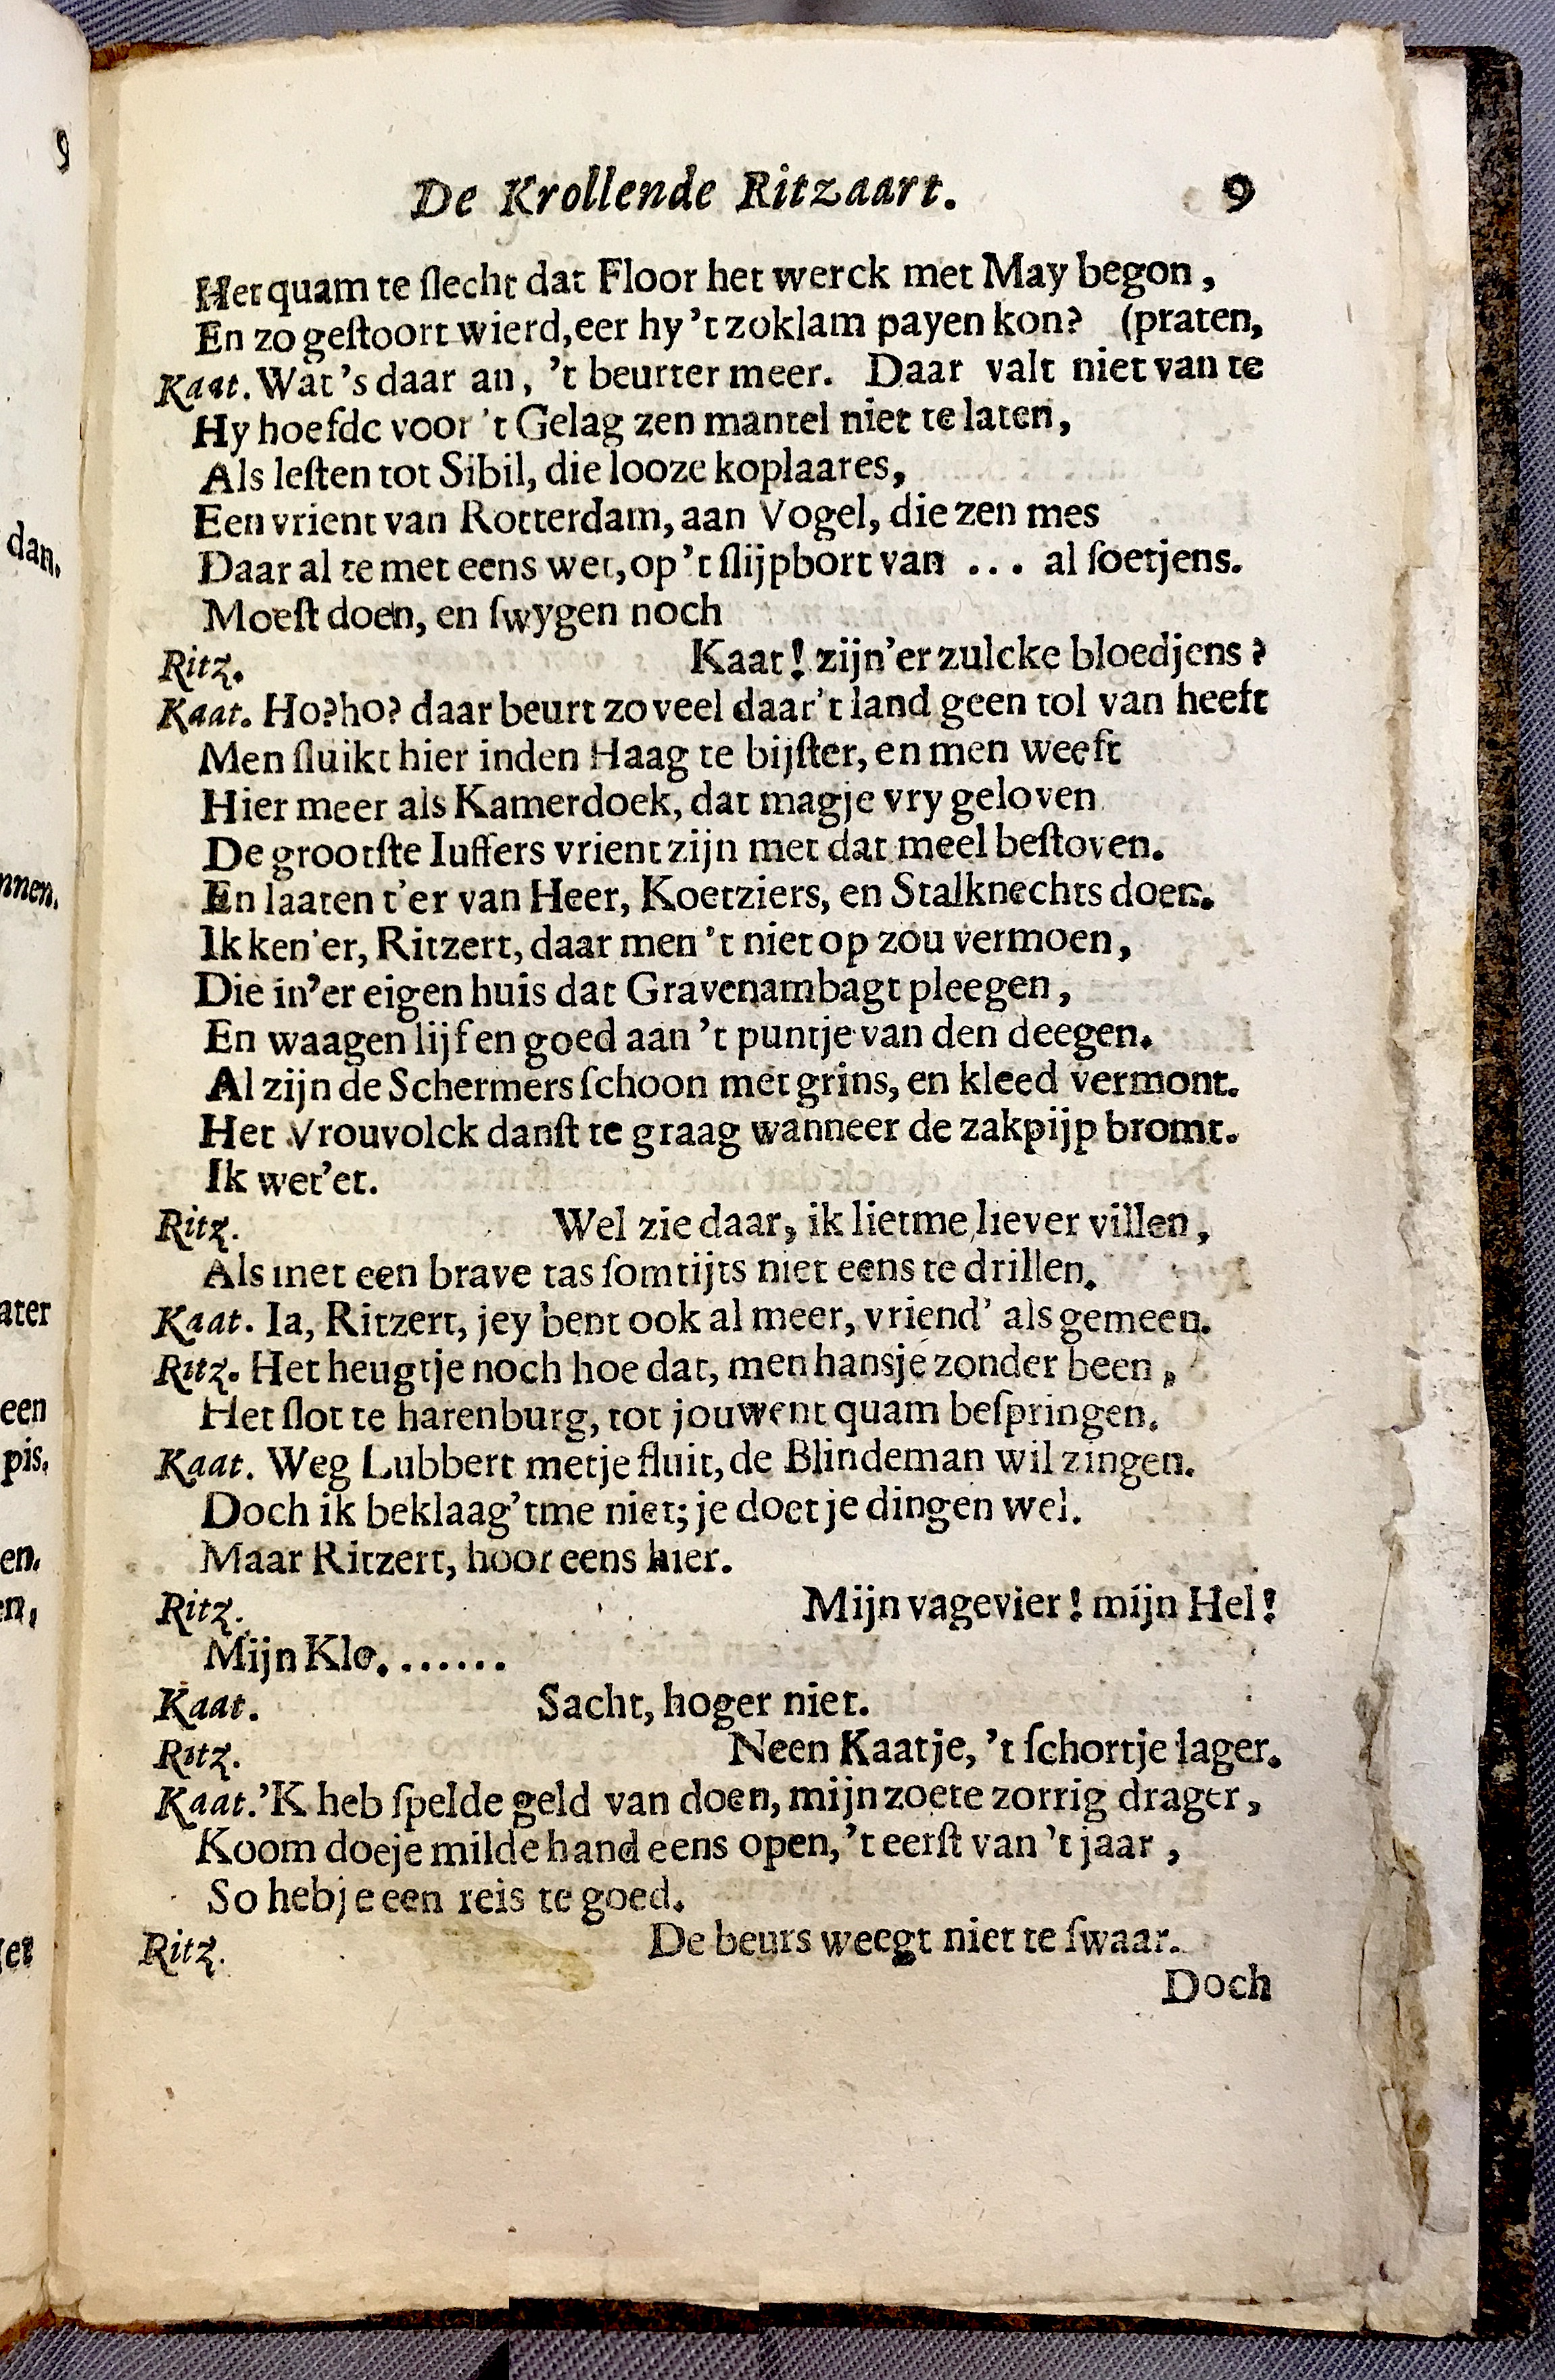 De Krollende Ritzaart. 9
Het quam te ſlecht dat Floor het werck met May begon,
En zo geſtoort wierd, eer hy 't zoklam payen kon? (praten,
Kaat. Wat 's daar an, 't beurter meer. Daar valt niet van te
Hy hoefde voor 't Gelag zen mantel niet te laten,
Als leſten tot Sibil, die looze koplaares,
Een vrient van Rotterdam, aan Vogel, die zen mes
Daar al te met eens wet, op 't ſlijpbort van ... al ſoetjens.
Moeſt doen, en ſwygen noch
Ritz. Kaat! zijn'er zulcke bloedjens?
Kaat. Ho? ho? daar beurt zo veel daar't land geen tol van heeft
Men ſluikt hier inden Haag te bijſter, en men weeft
Hier meer als Kamerdoek, dat magje vry geloven
De grootſte Iuffers vrient zijn met dat meel beſtoven.
En laaten t'er van Heer, Koetziers, en Stalknechts doen.
Ik ken'er, Ritzert, daar men 't niet op zou vermoen,
Die in'er eigen huis dat Gravenambagt pleegen,
En waagen lijf en goed aan 't puntje van den deegen.
Al zijn de Schermers ſchoon met grins, en kleed vermont.
Het Vrouvolck danſt te graag wanneer de zakpijp bromt.
Ik wet'et.
Ritz. Wel zie daar, ik lietme liever villen,
Als met een brave tas ſomtijts niet eens te drillen.
Kaat. Ia, Ritzert, jey bent ook al meer, vriend' als gemeen.
Ritz. Het heugtje noch hoe dat, men hansje zonder been,
Het ſlot te harenburg, tot jouwent quam beſpringen.
Kaat. Weg Lubbert metje fluit, de Blindeman wil zingen.
Doch ik beklaag'tme niet; je doet je dingen wel.
Maar Ritzert, hoor eens hier.
Ritz. Mijn vagevier! mijn Hel!
Mijn Klo. . . . . . .
Kaat. Sacht, hoger niet.
Ritz. Neen Kaatje, 't ſchortje lager.
Kaat. 'K heb ſpelde geld van doen, mijn zoete zorrig drager,
Koom doeje milde hand eens open, 't eerſt van 't jaar,
So hebje een reis te goed.
Ritz. De beurs weegt niet te ſwaar.
Doch
9
dan.
nnen.
ater
een
pis.
en.
en,